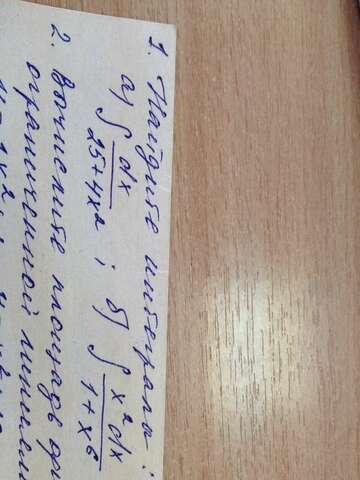 1. Найдите интегралы:
а) ∫ dx / 25+4x² ; б) ∫ x² dx / 1+x⁶
2. Вычислите площадь
ограниченной линиями